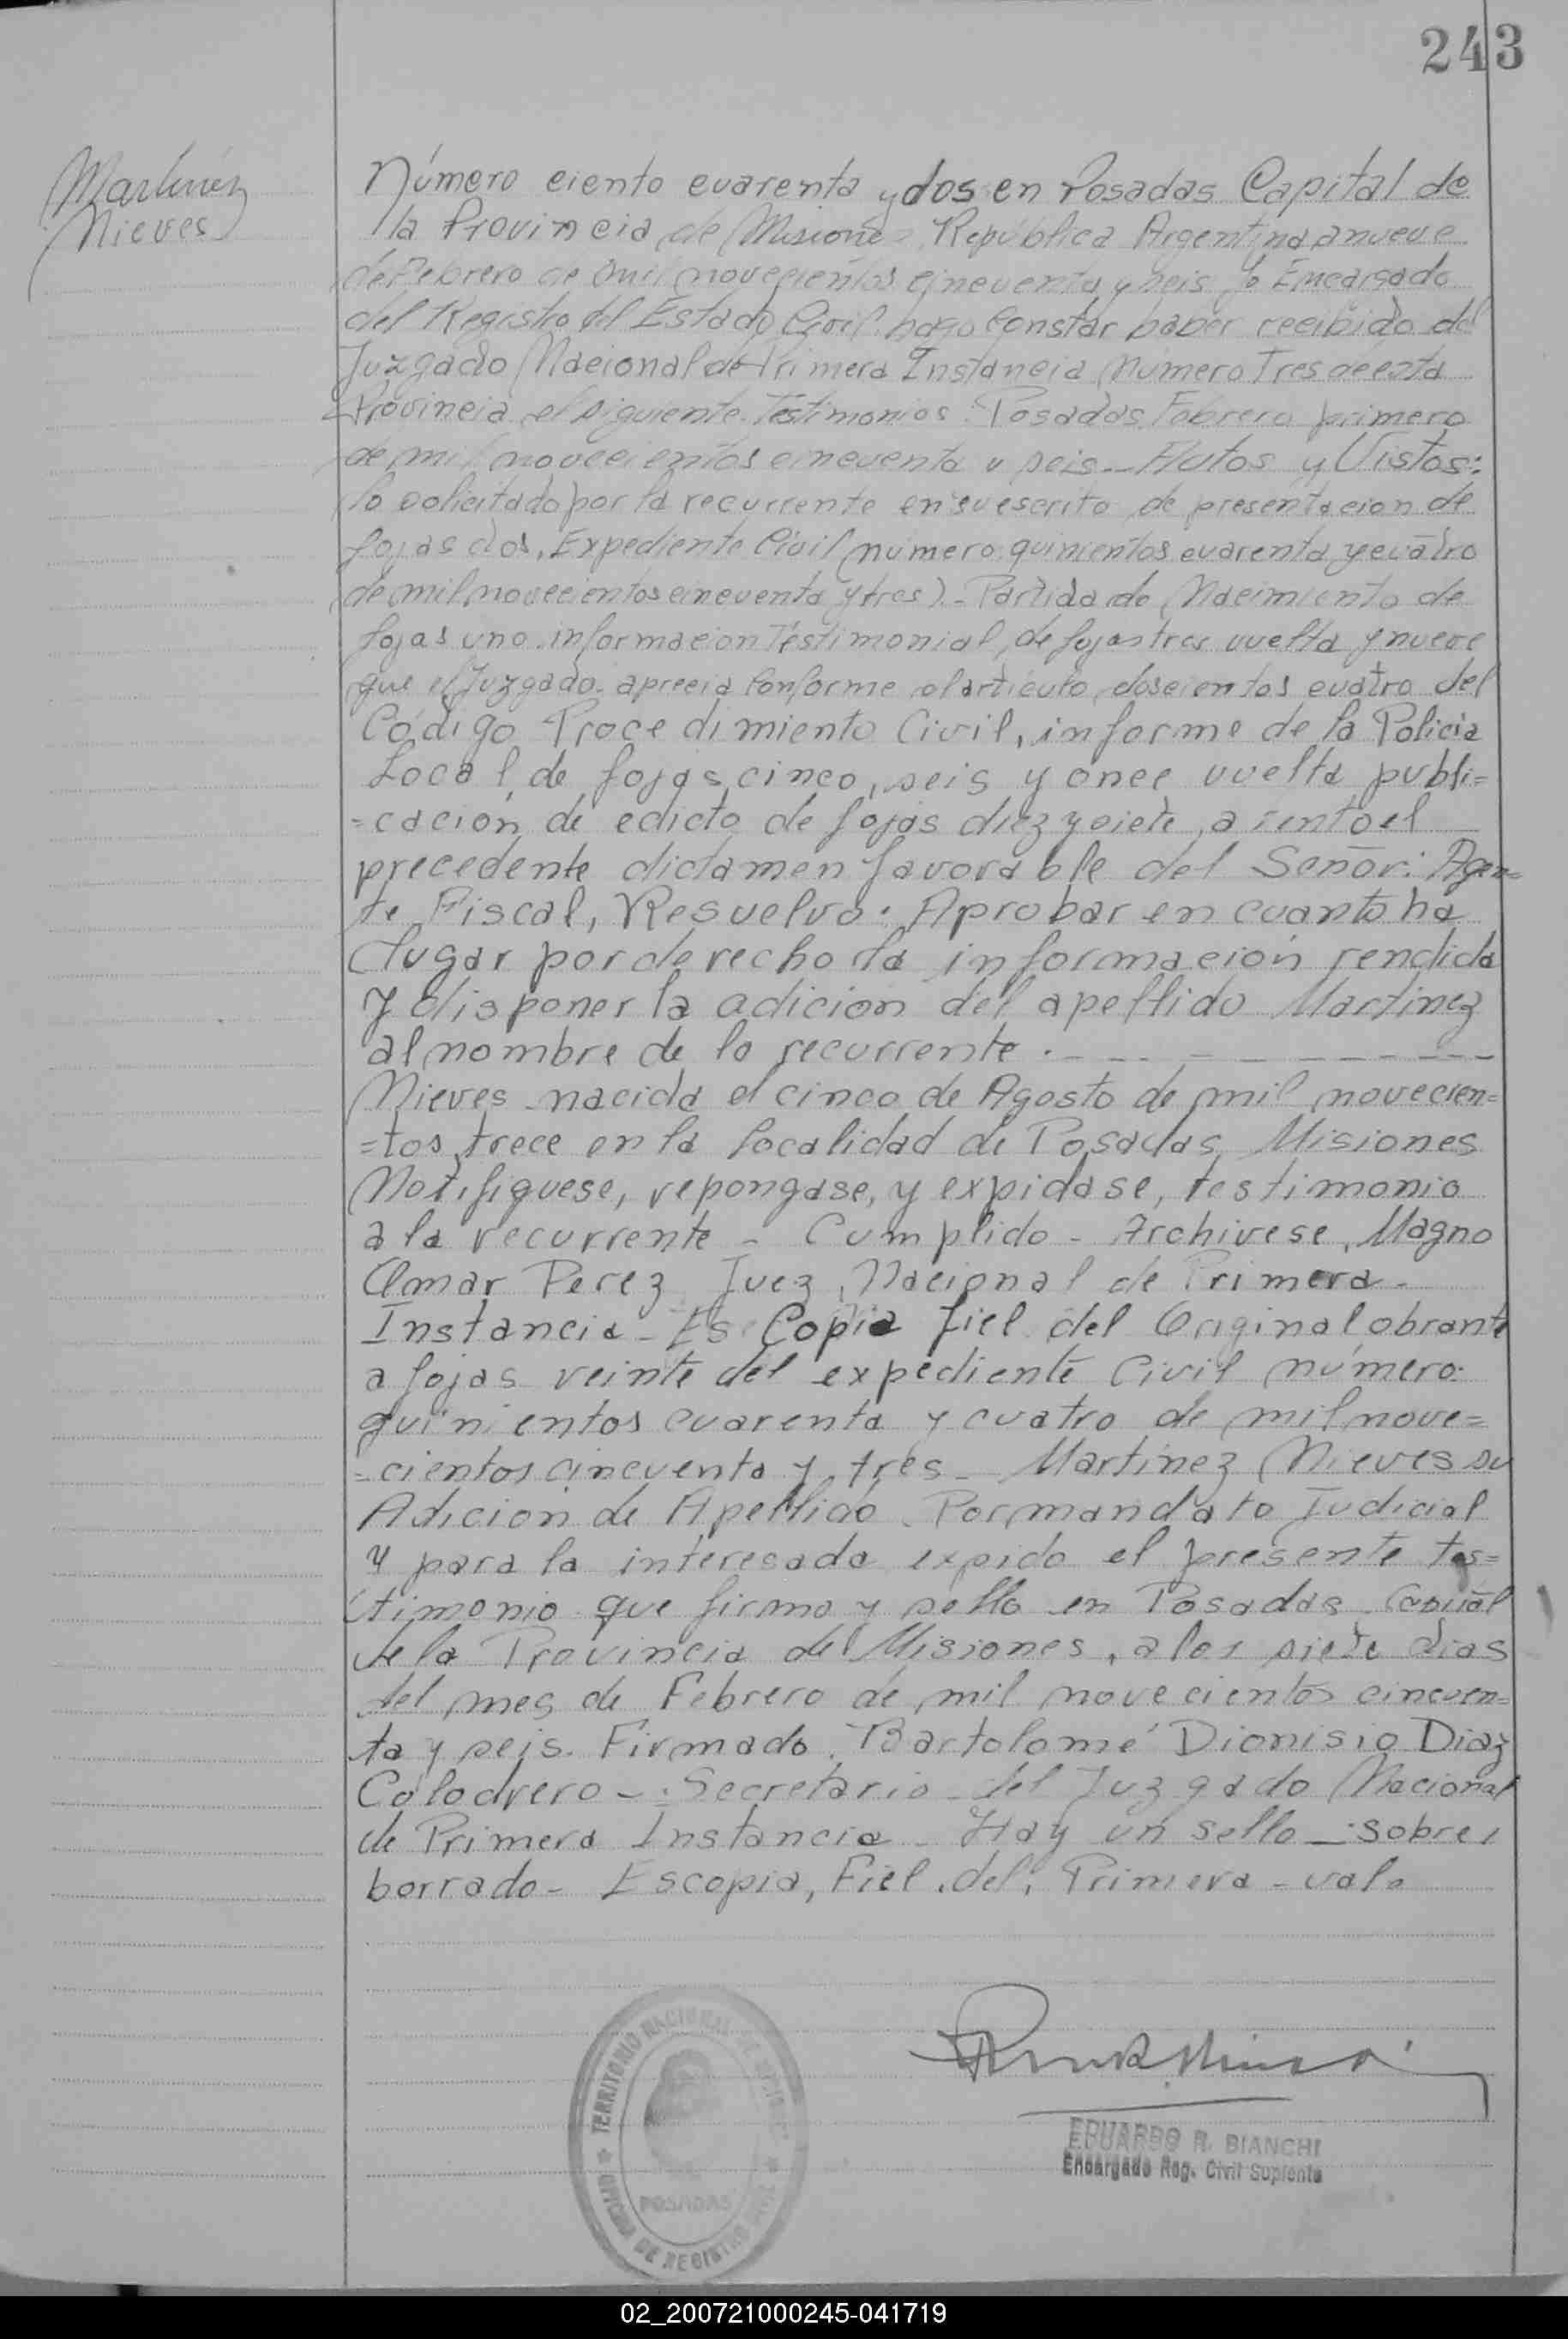 243
Martinez
Nieves
Número ciento cuarenta y dos en Posadas Capital de
la Provincia de Misiones República Argentina a nueve
de Febrero de mil novecientos cincuenta y seis yo Encargado
del Registro del Estado Civil hago Constar haber recibido del
Juzgado Nacional de Primera Instancia Número Tres de esta
Provincia el siguiente Testimonios: Posadas Febrero primero
de mil novecientos cincuenta y seis.- Autos y Vistos:
lo solicitado por la recurrente en su escrito de presentacion de
fojas dos, Expediente Civil (número quinientos cuarenta y cuatro
de mil novecientos cincuenta y tres).- Partida de Nacimiento de
fojas uno. informacion Testimonial, de fojas tres vuelta y nueve
que el Juzgado. aprecia Conforme al artículo, doscientos cuatro del
Código Procedimiento Civil, informe de la Policia
Local, de fojas cinco, seis y once vuelta publi=
=cación de edicto de fojas diez y siete, a tento el
precedente dictamen favorable del Señor: Agen=
te Fiscal, Resuelvo: Aprobar en cuanto ha
lugar por derecho la información rendida
y disponer la adicion del apellido Martinez
al nombre de la recurrente . - - - - - - - - - -
Nieves nacida el cinco de Agosto de mil novecien=
=tos trece en la localidad de Posadas Misiones
Notifiquese, repongase, y expidase, testimonio
a la recurrente - Cumplido - Archivese, Magno
Omar Perez Juez Nacional de Primera -
Instancia - Es Copia fiel del Original obrante
a fojas veinte del expediente Civil número:
quinientos cuarenta y cuatro de mil nove=
=cientos cincuenta y tres - Martinez Nieves su
Adicion de Apellido. Por mandato Judicial
y para la interesada expido el presente tes=
timonio que firmo y sello en Posadas, Capital
de la Provincia de Misiones, a los siete dias
del mes de Febrero de mil novecientos cincuen=
ta y seis. Firmado. Bartolomé Dionisio Diaz
Colodrero -. Secretario del Juzgado Nacional
de Primera Instancia - Hay un sello - sobre,
borrado - Es copia, Fiel, del, Primera - vale
TERRITORIO NACIONAL DE MISIONES
OFICINA DE REGISTRO CIVIL
POSADAS
EDUARDO R. BIANCHI
Encargado Reg. Civil Suplente
02_200721000245-041719